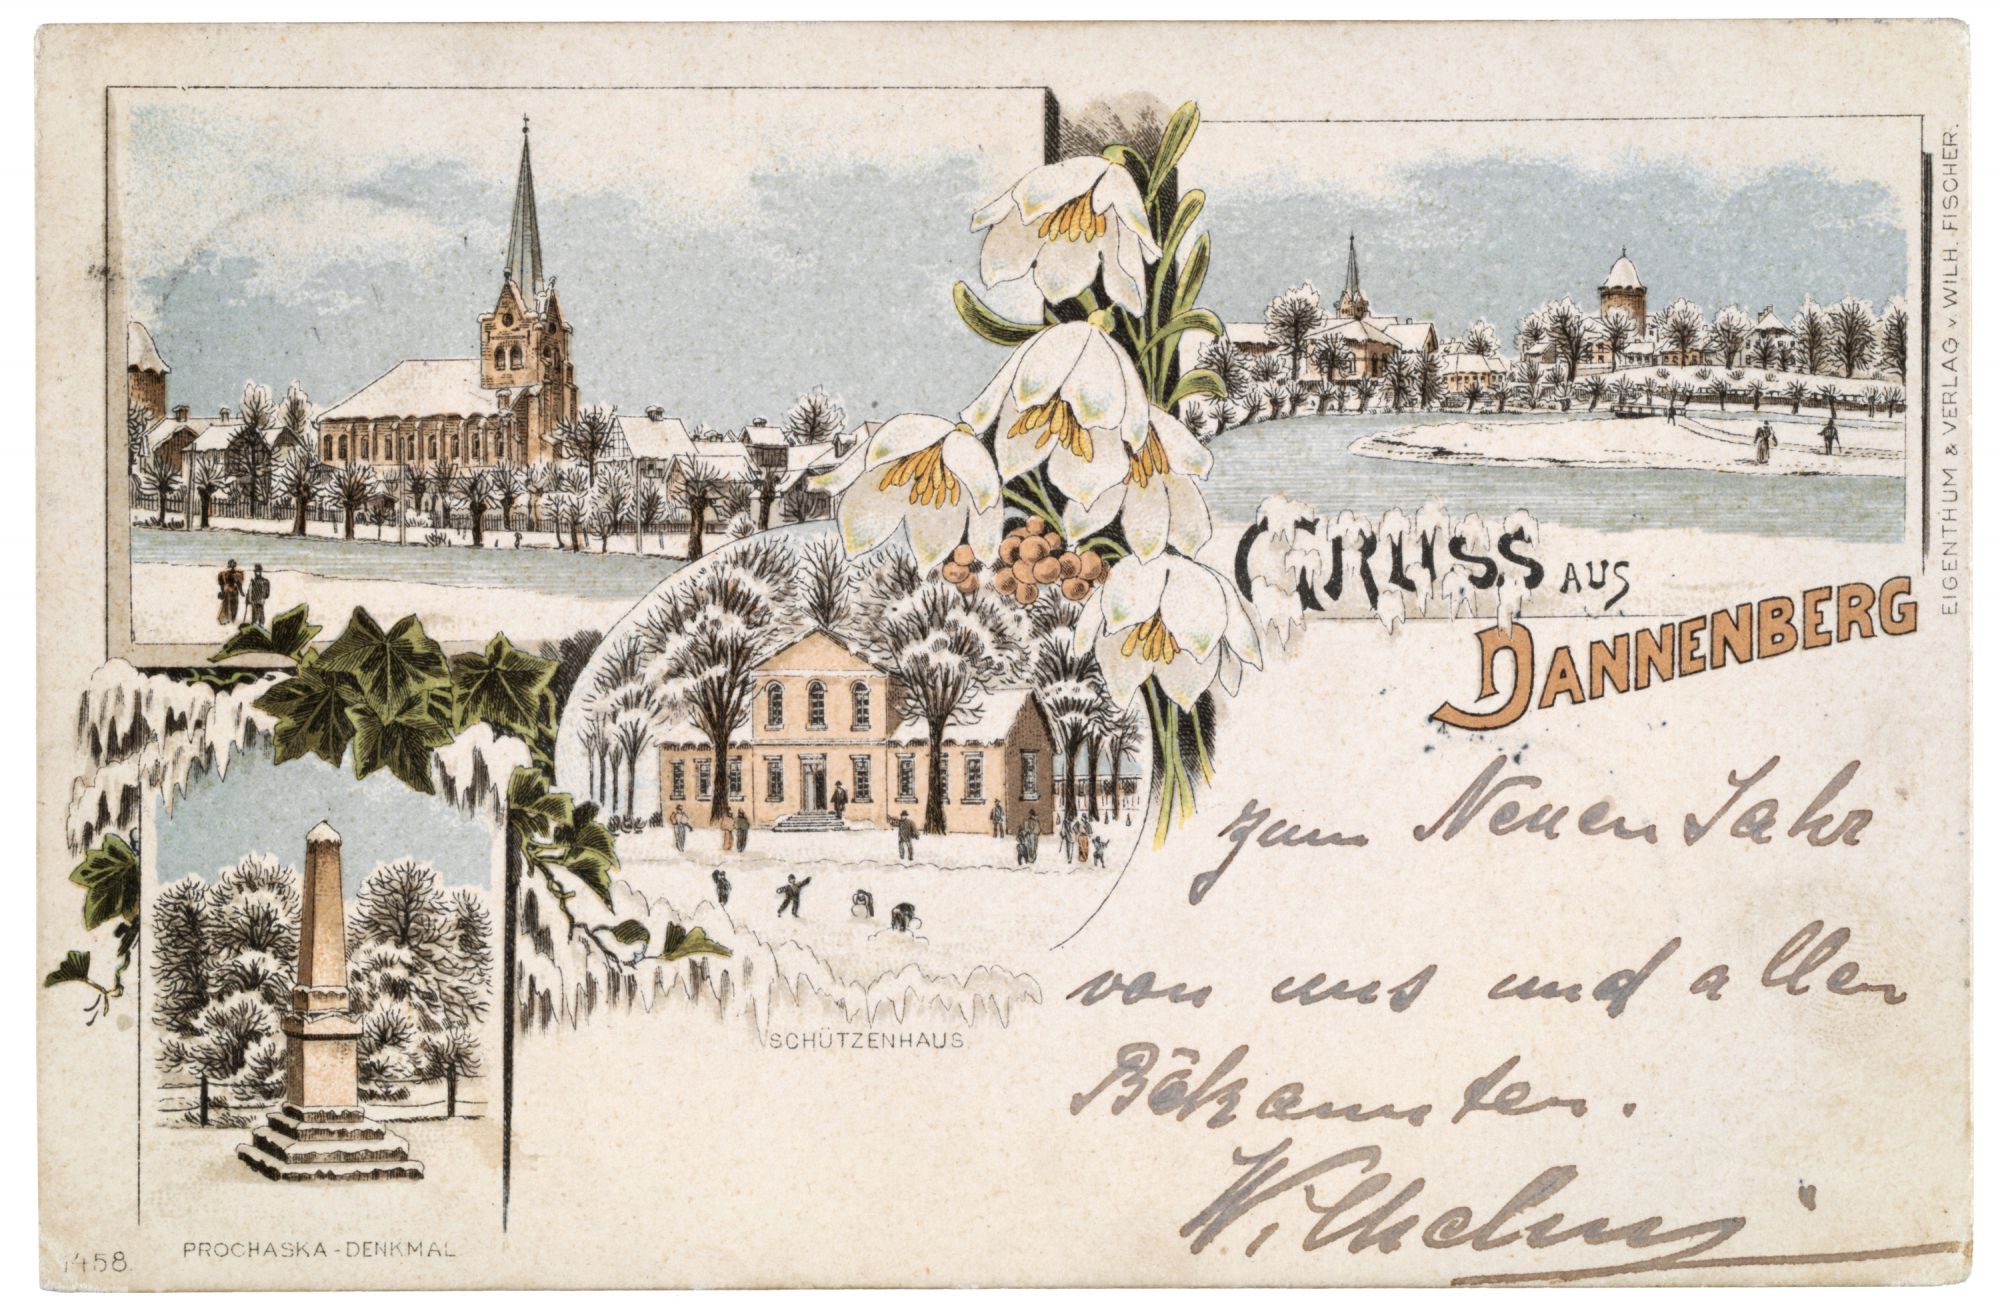 GRUSS AUS
DANNENBERG
EIGENTHUM & VERLAG v. WILH. FISCHER.
zum Neuen Jahr
von uns und allen
Bekannten.
Wilhelm
SCHÜTZENHAUS
PROCHASKA-DENKMAL
1458